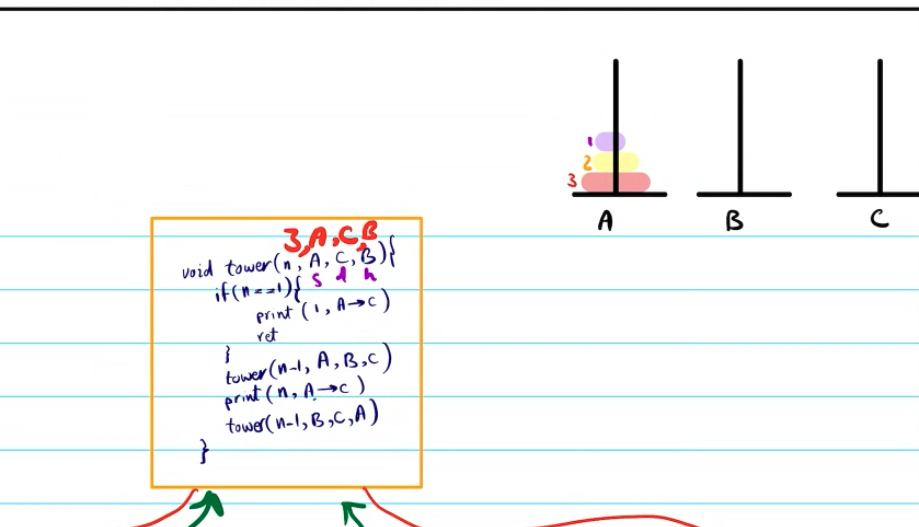 1
2
3
A B C
3,A,C,B
void tower(n, A, C, B){
s d h
if(n==1){
print(1, A→C)
ret
}
tower(n-1, A, B, C)
print(n, A→C)
tower(n-1, B, C, A)
}